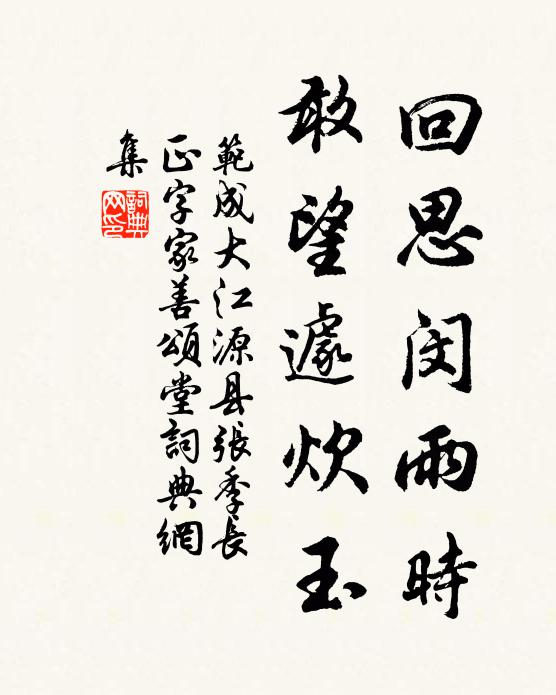 回思闵雨時
敢望遽炊玉
範成大江源县張季長
正字家善頌堂詞典網
集
詞典网印